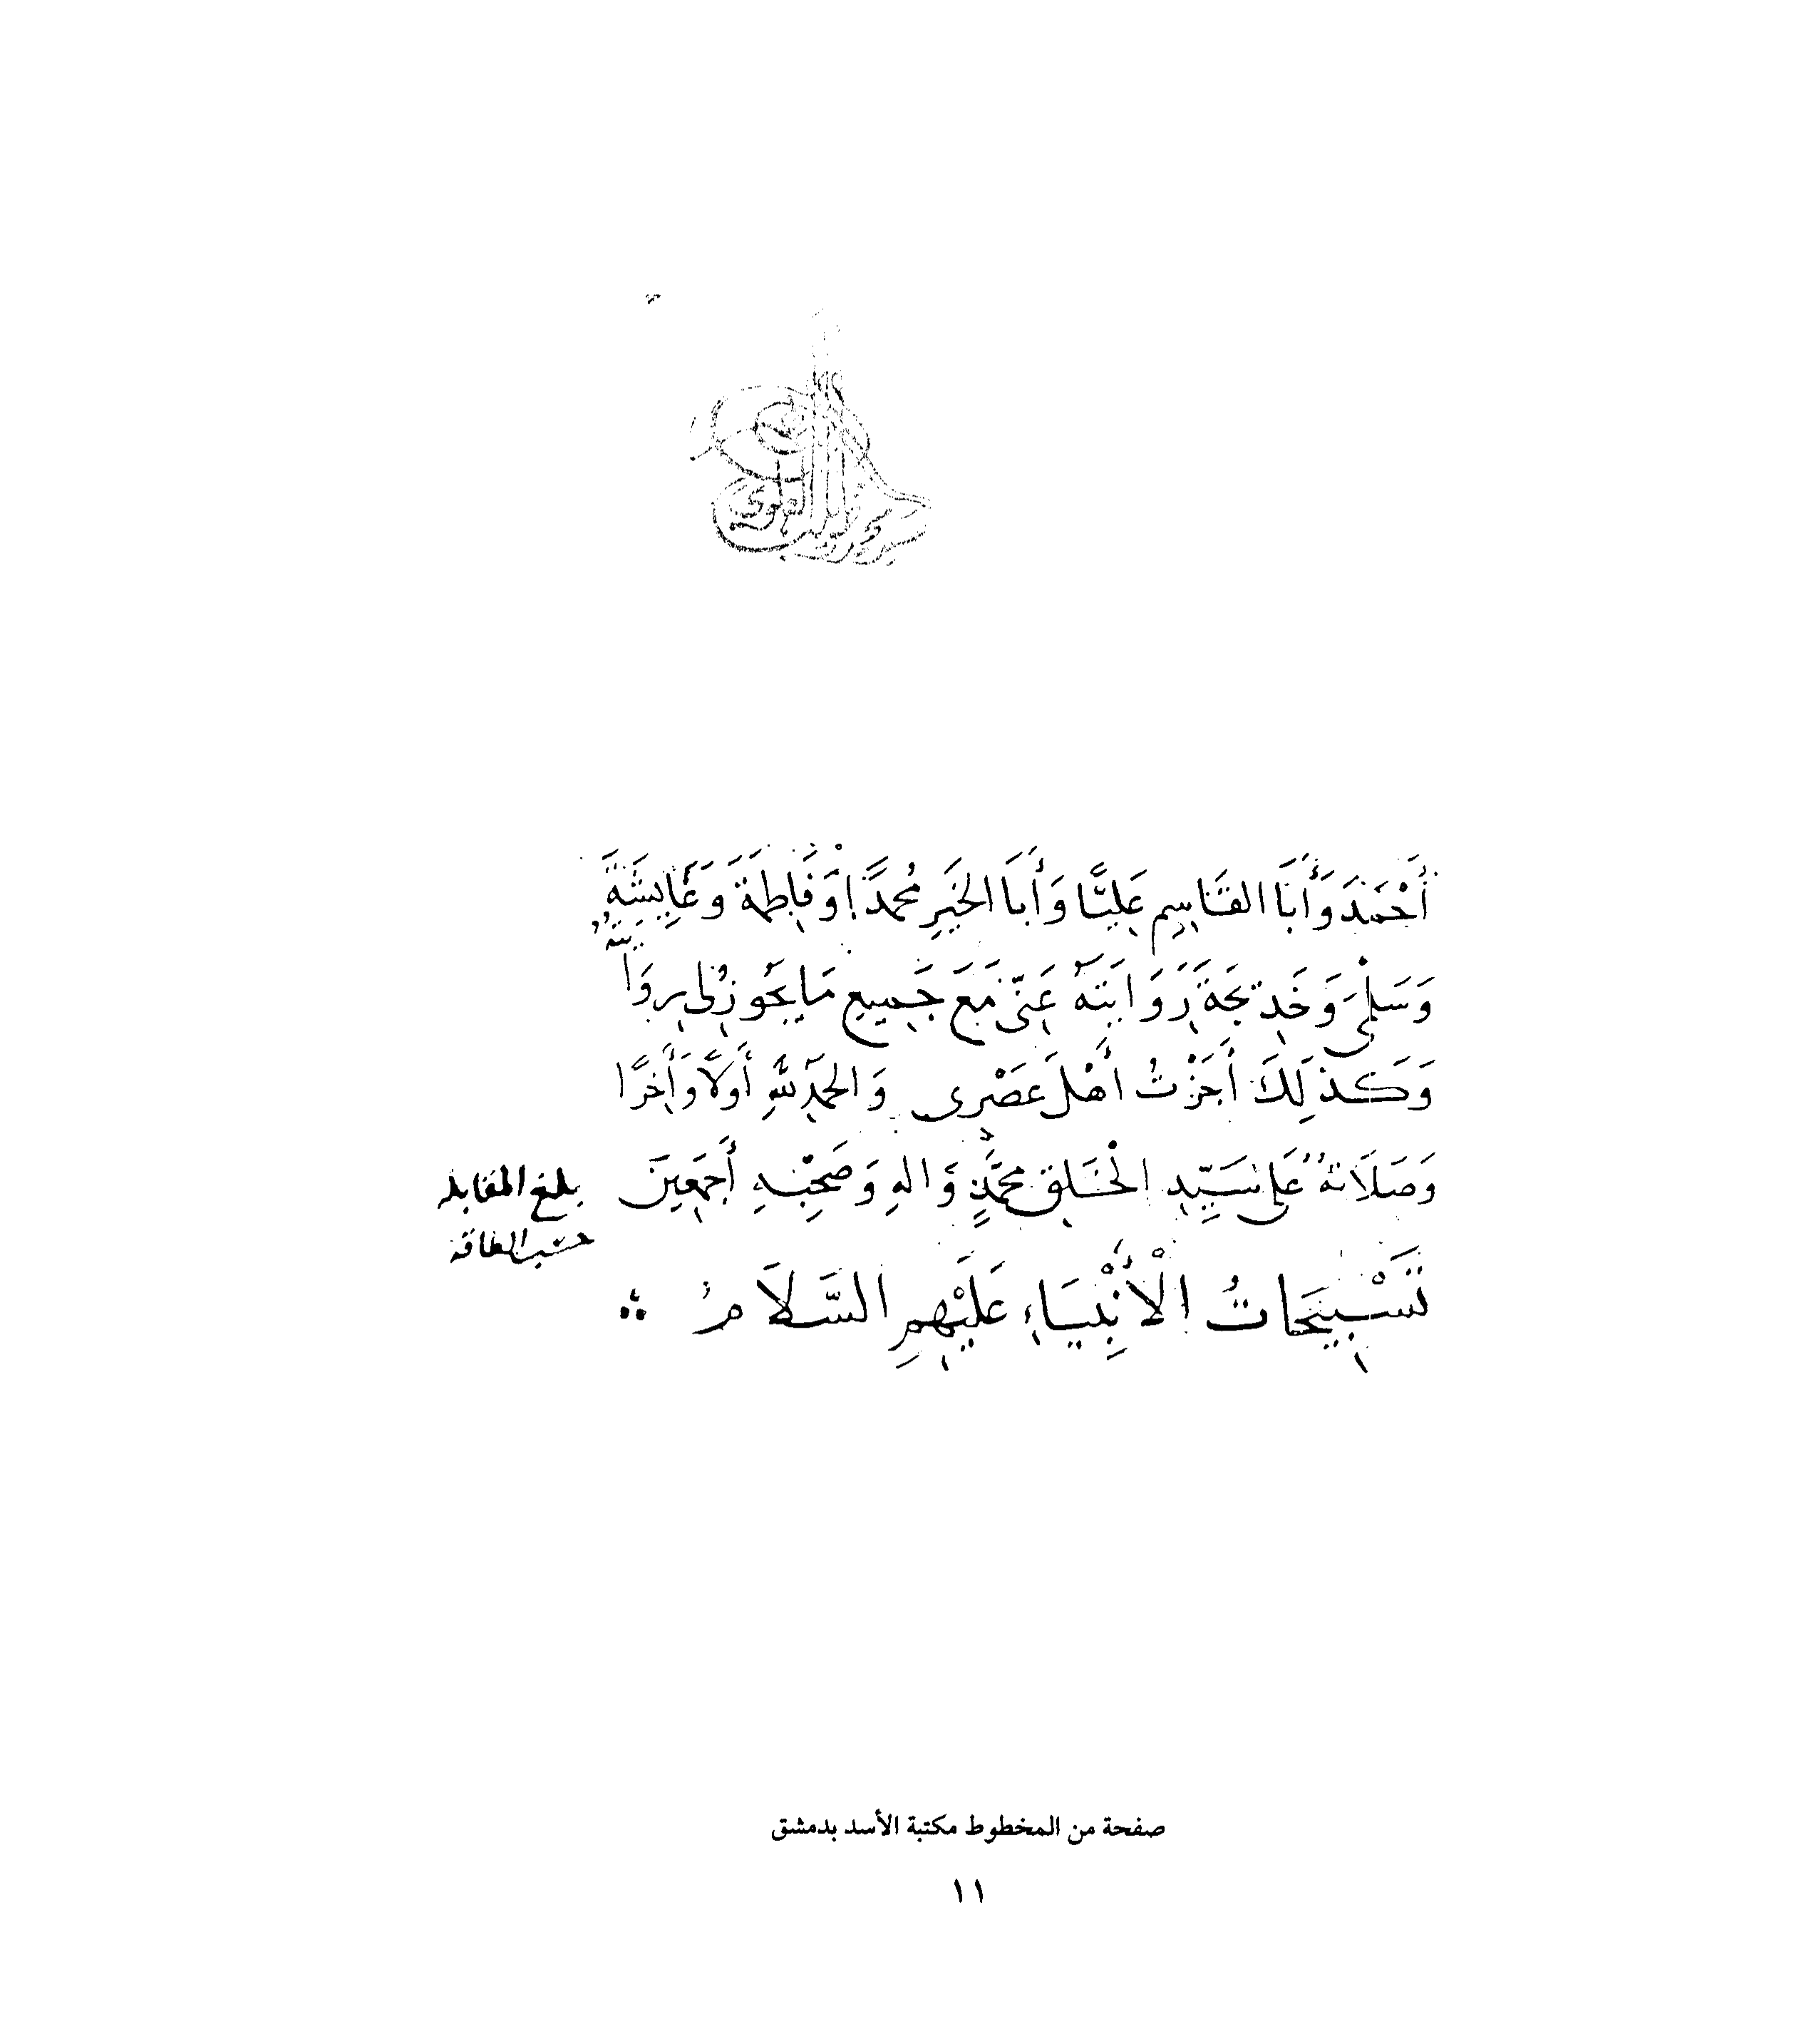 أَحْمَدَ وَأَبَا القَاسِمِ عَلِيًّا وَأَبَا الخَيرِ مُحمدًا وَفَاطِمَةَ وَعَائِشَةَ
وَسَلْمَى وَخَدِيجَةَ رَوَايَتَهُ عَنِّي مَعَ جَمِيعِ مَا يَجُوزُ لِي رِوَايَتُهُ
وَكَذلِكَ أَجَزْتُ أَهْلَ عَصْرِى وَالحمدُ للهِ أَولاً وَأَخِرًا
وَصَلَاتهُ عَلى سَيِّدِ الْخَلقِ مُحمَّدٍ وَالهِ وَصَحْبِهِ أَجمَعِينَ
بلغ المقابله
حسب الطاقة
تَسْبِيحَاتُ الْأَنْبِيَاءِ عَلَيْهِمِ السَّلَامُ
صفحة من المخطوط مكتبة الأسد بدمشق
١١